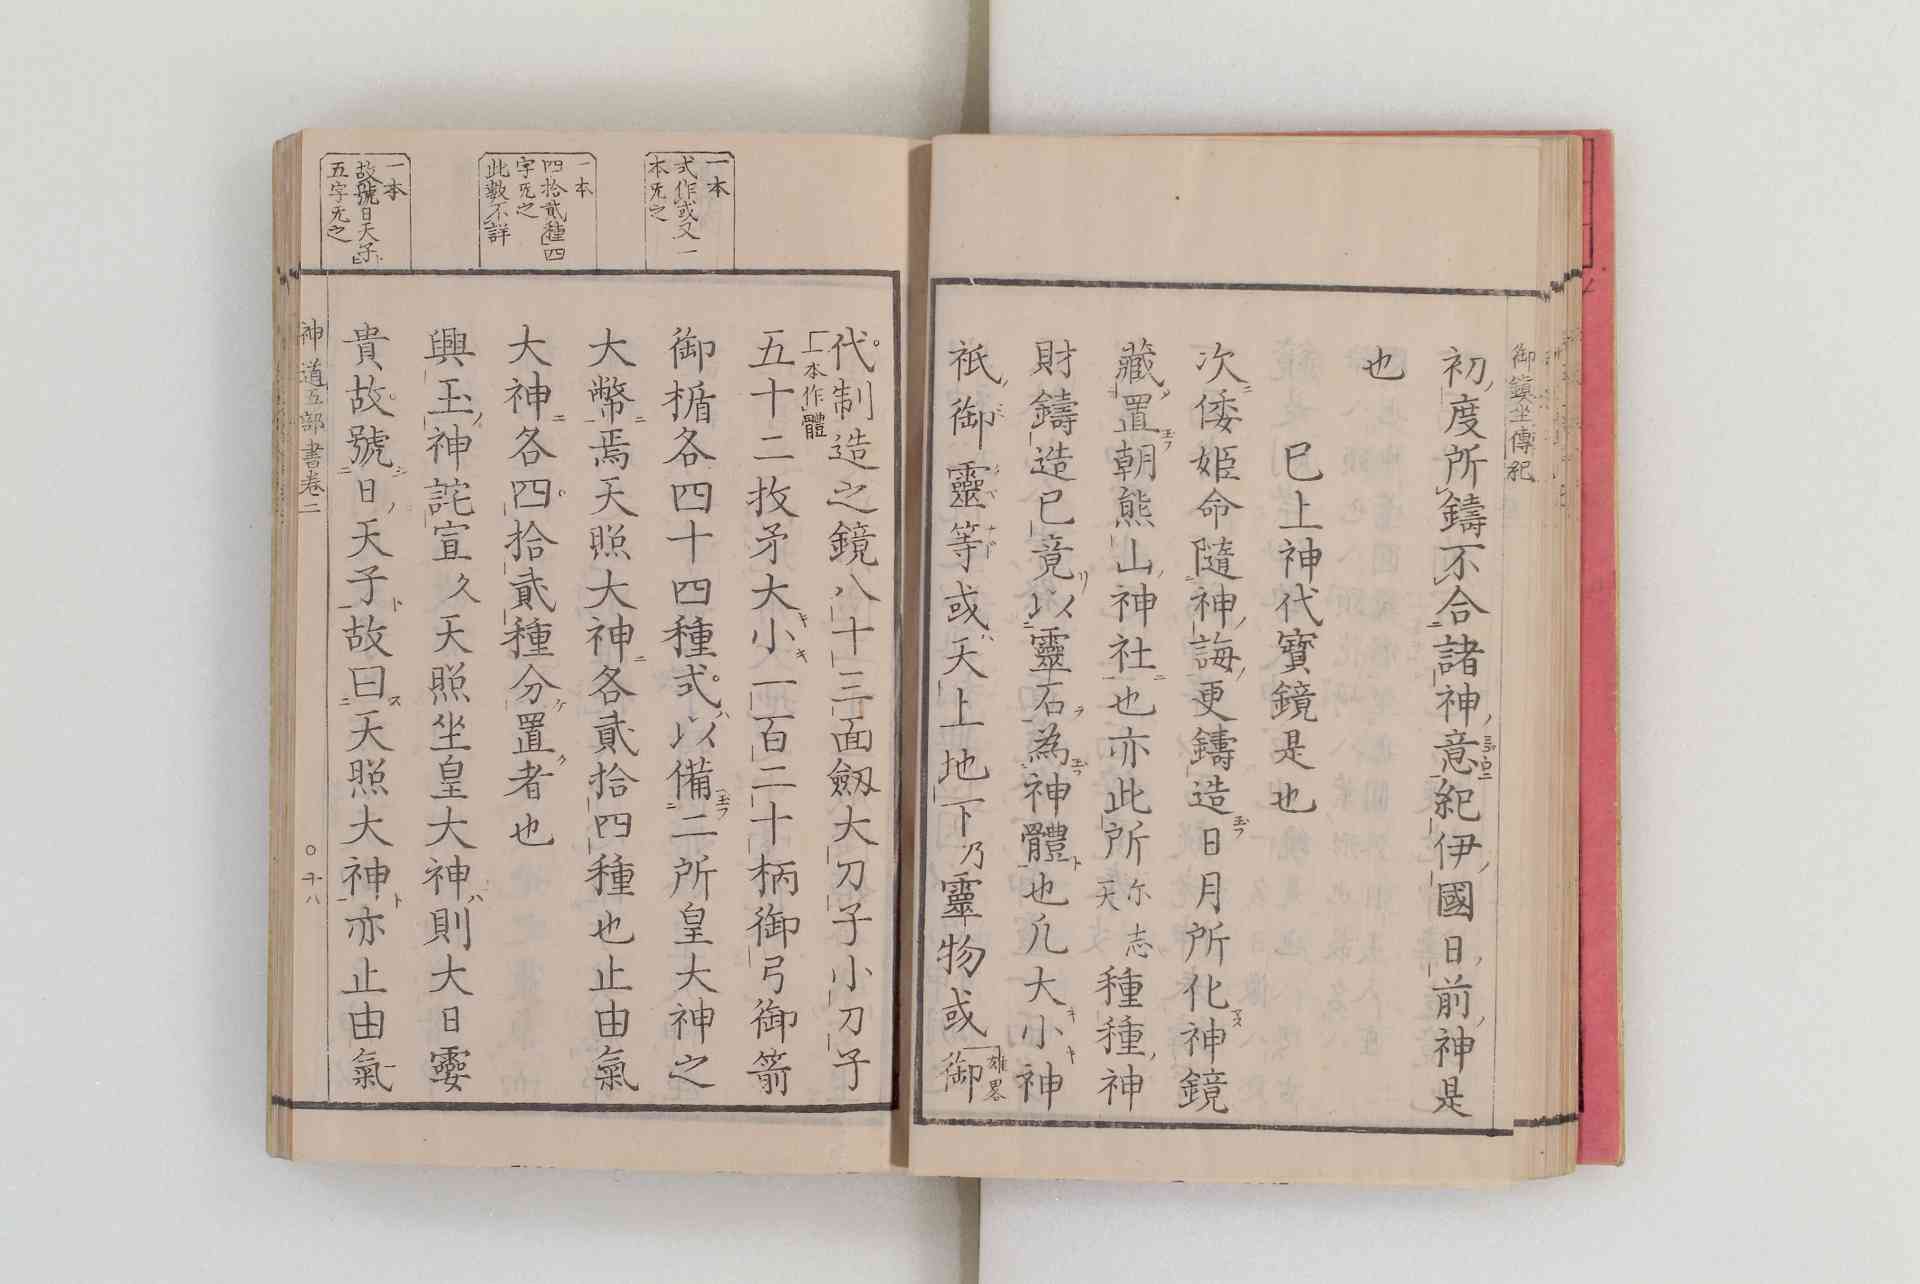 御鎮坐傳紀
初度所鑄不合諸神意紀伊國日前神是
也
已上神代寶鏡是也
次倭姬命隨神誨更鑄造日月所化神鏡
藏置朝熊山神社也亦此所
尓志
天
種種神
財鑄造已竟以靈石為神體也凡大小神
祇御靈等或天上地下乃靈物或御
雄畧
代制造之鏡八十三面劔大刀子小刀子
一本作體
五十二枚矛大小一百二十柄御弓御箭
御楯各四十四種式以備二所皇大神之
大幣焉天照大神各貳拾四種也止由氣
大神各四拾貳種分置者也
興玉神詫宣久天照坐皇大神則大日孁
貴故號日天子故曰天照大神亦止由氣
神道五部書卷二
〇十八
一本
式作或又一
本旡之
一本
四拾貳種四
字旡之
此數不詳
一本
故號日天子
五字旡之